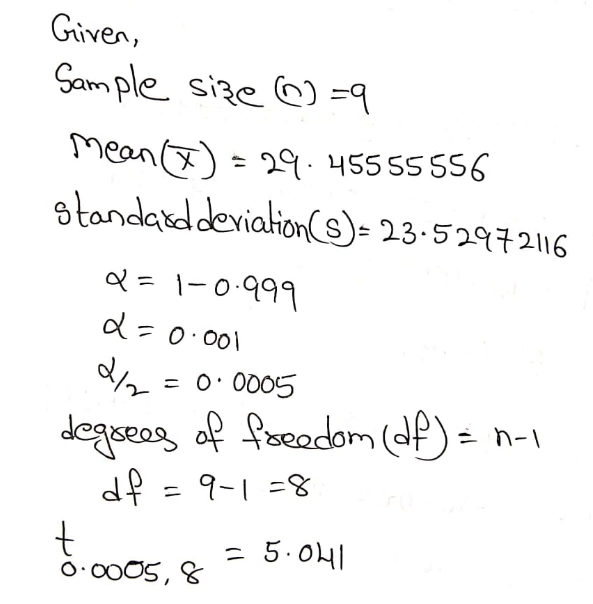 Given,
Sample size (n) = 9
Mean (x̅) = 29.45555556
standard deviation (s) = 23.52972116
α = 1-0.999
α = 0.001
α/2 = 0.0005
degrees of freedom (df) = n-1
df = 9-1 = 8
t 0.0005, 8 = 5.041